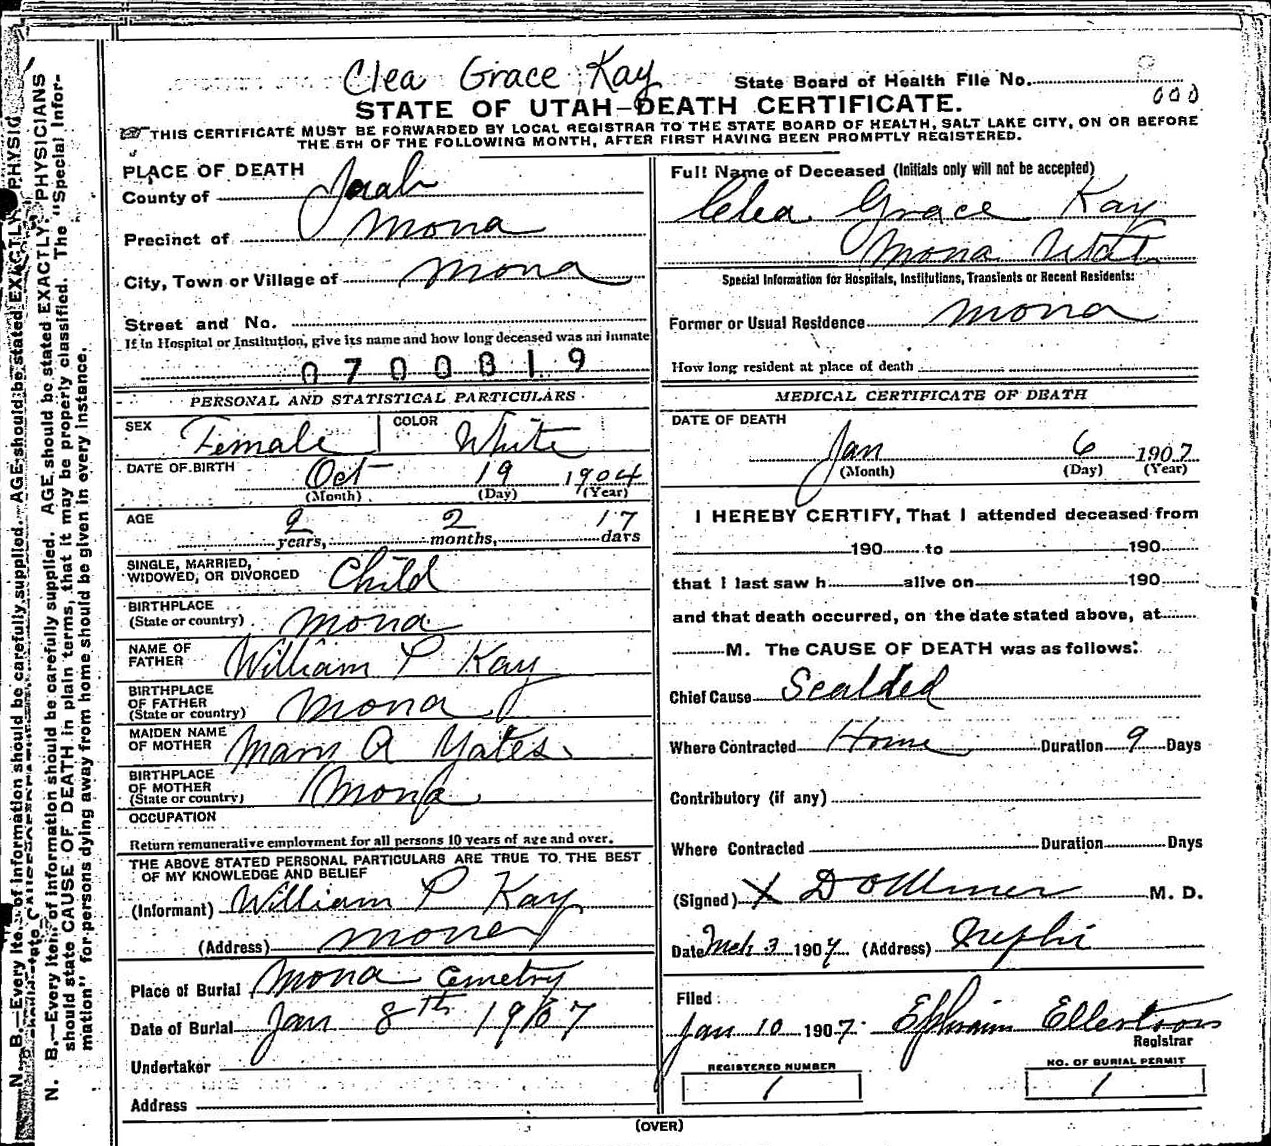 Clea Grace Kay
State Board of Health File No.
000
STATE OF UTAH—DEATH CERTIFICATE.
THIS CERTIFICATE MUST BE FORWARDED BY LOCAL REGISTRAR TO THE STATE BOARD OF HEALTH, SALT LAKE CITY, ON OR BEFORE
THE 5TH OF THE FOLLOWING MONTH, AFTER FIRST HAVING BEEN PROMPTLY REGISTERED.
PLACE OF DEATH
County of Juab
Precinct of Mona
City, Town or Village of Mona
Street and No.
If in Hospital or Institution, give its name and how long deceased was an inmate
0700819
PERSONAL AND STATISTICAL PARTICULARS
SEX Female COLOR White
DATE OF BIRTH Oct 19 1904
(Month) (Day) (Year)
AGE 2 years, 2 months, 17 days
SINGLE, MARRIED,
WIDOWED, OR DIVORCED Child
BIRTHPLACE
(State or country) Mona
NAME OF
FATHER William P Kay
BIRTHPLACE
OF FATHER
(State or country) Mona
MAIDEN NAME
OF MOTHER Mary A Yates
BIRTHPLACE
OF MOTHER
(State or country) Mona
OCCUPATION
Return remunerative employment for all persons 10 years of age and over.
THE ABOVE STATED PERSONAL PARTICULARS ARE TRUE TO THE BEST
OF MY KNOWLEDGE AND BELIEF
(Informant) William P Kay
(Address) Mona
Place of Burial Mona Cemetry
Date of Burial Jan 8th 1907
Undertaker
Address
Full Name of Deceased (Initials only will not be accepted)
Clea Grace Kay
Mona Utah
Special Information for Hospitals, Institutions, Transients or Recent Residents:
Former or Usual Residence Mona
How long resident at place of death
MEDICAL CERTIFICATE OF DEATH
DATE OF DEATH
Jan 6 1907
(Month) (Day) (Year)
I HEREBY CERTIFY, That I attended deceased from
190 to 190
that I last saw h alive on 190
and that death occurred, on the date stated above, at
M. The CAUSE OF DEATH was as follows:
Chief Cause Scalded
Where Contracted Home Duration 9 Days
Contributory (if any)
Where Contracted Duration Days
(Signed) X M. D.
Date Mch 3 1907 (Address) Nephi
Filed
Jan 10 1907. Ephraim Ellertson
Registrar
REGISTERED NUMBER
1
NO. OF BURIAL PERMIT
1
(OVER)
N. B.—Every item of information should be carefully supplied. AGE should be stated EXACTLY. PHYSICIANS
should state CAUSE OF DEATH in plain terms, that it may be properly classified. The "Special Infor-
mation" for persons dying away from home should be given in every instance.